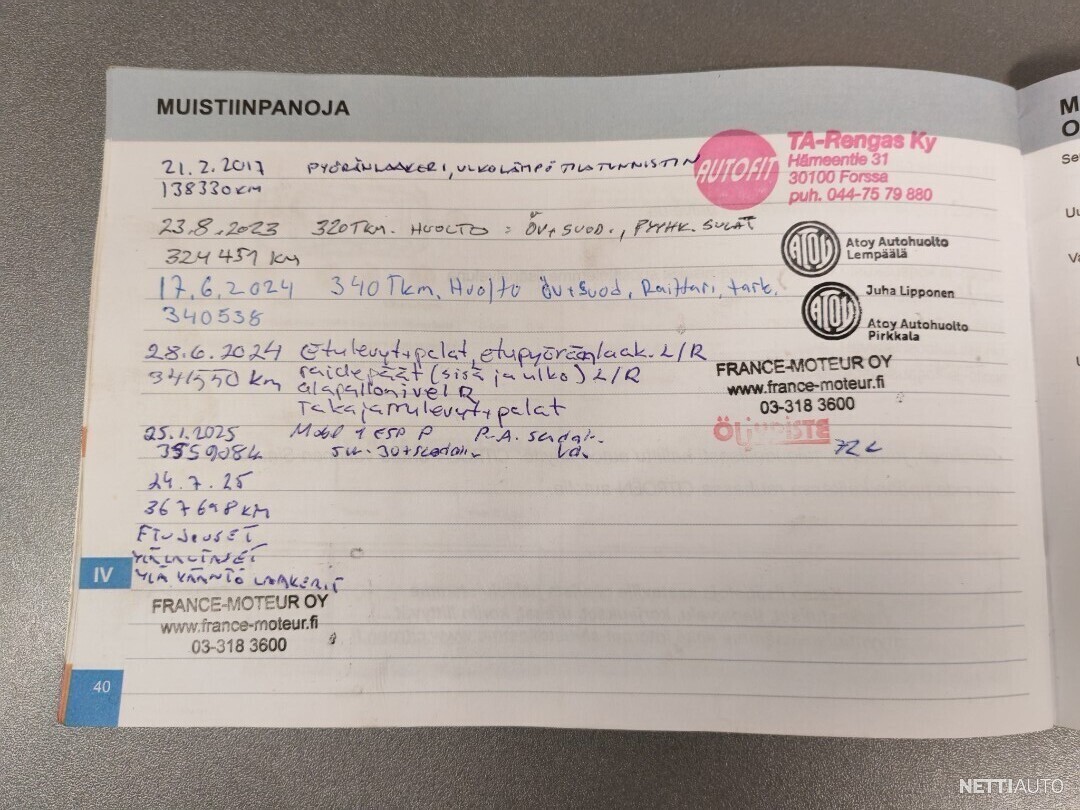 MUISTIINPANOJA
M
O
21.2.2017 PYÖRÄNLAAKERI, ULKOLÄMPÖTILATUNNISTIN
138330KM
AUTOFIT
TA-Rengas Ky
Hämeentie 31
30100 Forssa
puh. 044-75 79 880
23.8.2023 320TKM. HUOLTO = ÖV+SUOD., PYYHK. SULAT
324451 KM
ATOY
Atoy Autohuolto
Lempäälä
17.6.2024 340Tkm, Huolto öv+suod, Raittari, tark.
340538
ATOY
Juha Lipponen
Atoy Autohuolto
Pirkkala
28.6.2024 Etulevyt+palat, etupyöränlaak. L/R
341550 km raidepäät (sisä ja ulko) L/R
alapallonivel R
Takajarrulevyt+palat
FRANCE-MOTEUR OY
www.france-moteur.fi
03-318 3600
25.1.2025 Mobil 1 ESP P R.A.
5W-30+
Öljypiste
24.7.25
367698KM
ETUJOUSET
YLÄTALINJET
YLÄ KÄÄNTÖ LAAKERIT
FRANCE-MOTEUR OY
www.france-moteur.fi
03-318 3600
IV
40
NETTIAUTO